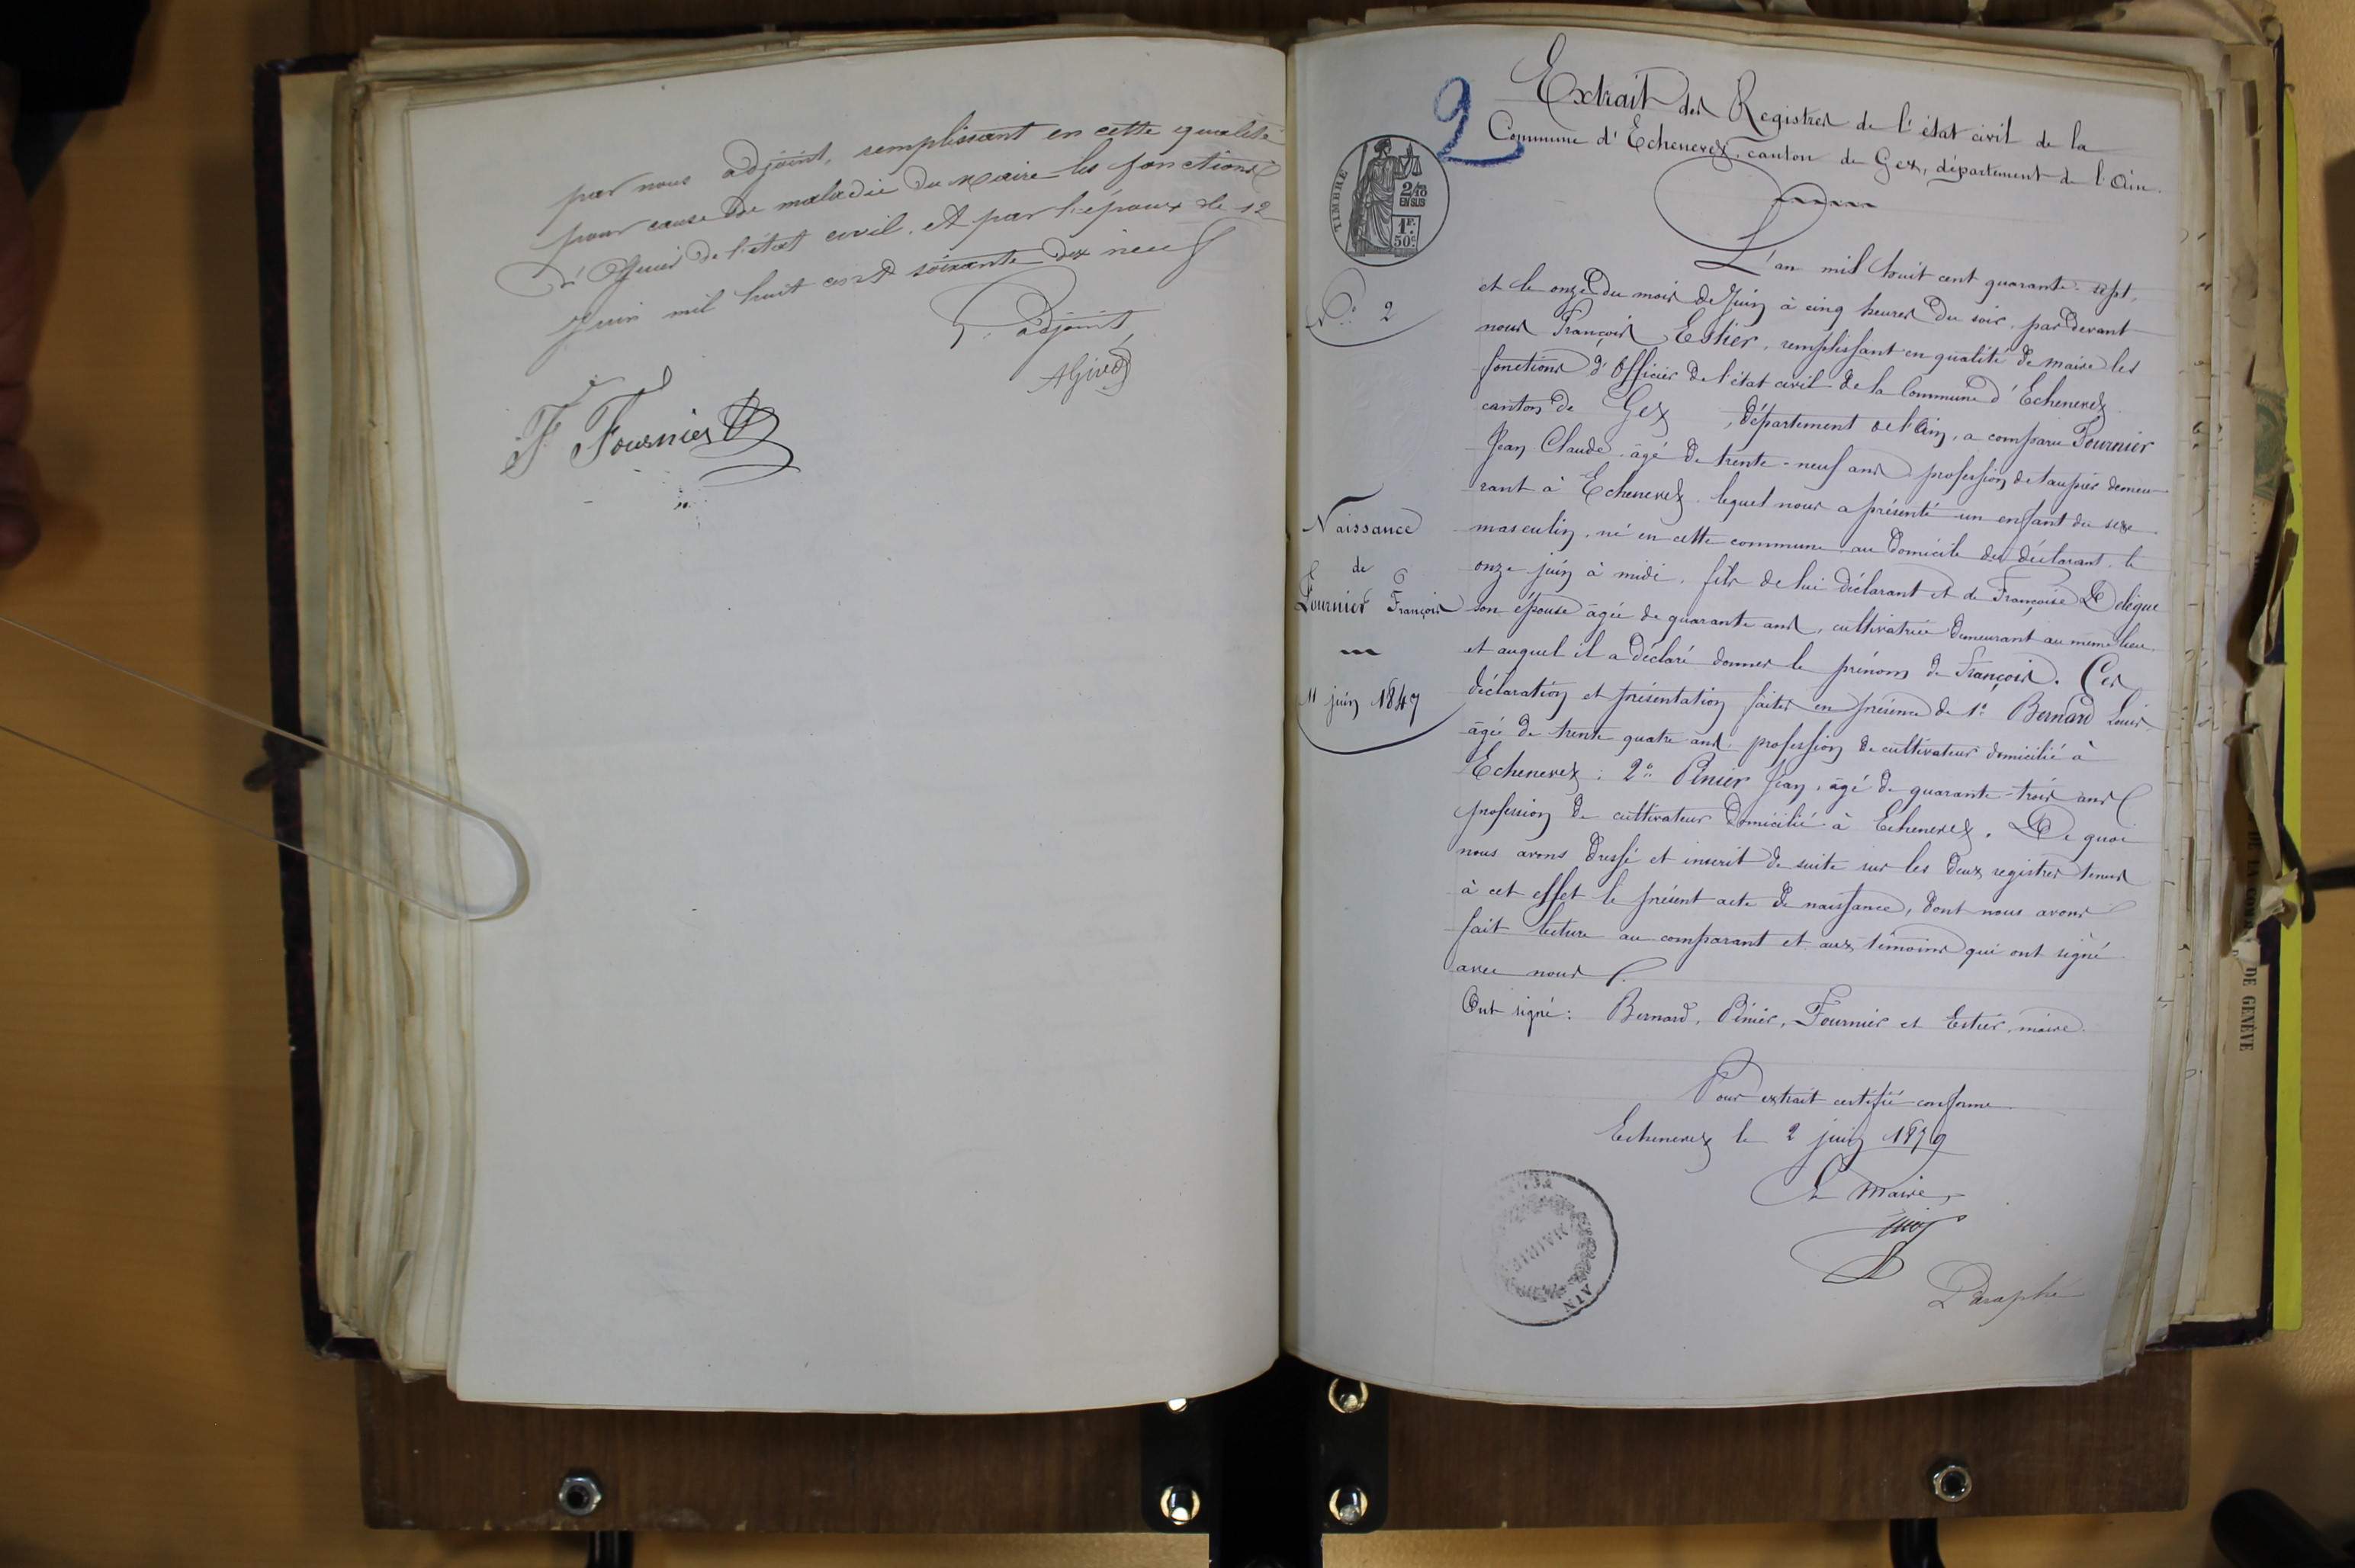 par nous adjoint, remplissant en cette qualité
pour cause de maladie du Maire les fonctions
d'Officier de l'état civil, et par l'époux le 12
Juin mil huit cent soixante dix neuf
L'adjoint,
F Fournier
2
Extrait des Registres de l'état civil de la
Commune d'Echenevex, canton de Gex, département de l'Ain.
TIMBRE
2/10
EN SUS
1F.
50c.
L'an mil huit cent quarante-sept,
N° 2
et le onze du mois de Juin à cinq heures du soir, par devant
nous François Estier, remplissant en qualité de maire les
fonctions d'Officier de l'état civil de la Commune d'Echenevex
canton de Gex, département de l'Ain, a comparu Fournier
Jean Claude, âgé de trente-neuf ans profession de taupier demeu-
rant à Echenevex lequel nous a présenté un enfant du sexe
masculin, né en cette commune au domicile du déclarant, le
onze juin à midi, fils de lui déclarant et de Françoise Délègue
son épouse âgée de quarante ans, cultivatrice demeurant au même lieu.
et auquel il a déclaré donner le prénom de François. Ces
déclaration et présentation faites en présence de 1° Bernard Louis,
âgé de trente quatre ans, profession de cultivateur domicilié à
Echenevex; 2° Pinier Jean, âgé de quarante-trois ans
profession de cultivateur domicilié à Echenevex. De quoi
nous avons dressé et inscrit de suite sur les deux registres tenus
à cet effet le présent acte de naissance, dont nous avons
fait lecture au comparant et aux témoins qui ont signé
avec nous.
Ont signé: Bernard, Pinier, Fournier et Estier, maire.
Naissance
de
Fournier François
11 juin 1847
Pour extrait certifié conforme
Echenevex le 2 juin 1879
Le Maire,
Paraphé
MAIRIE
AIN
DE GENÈVE